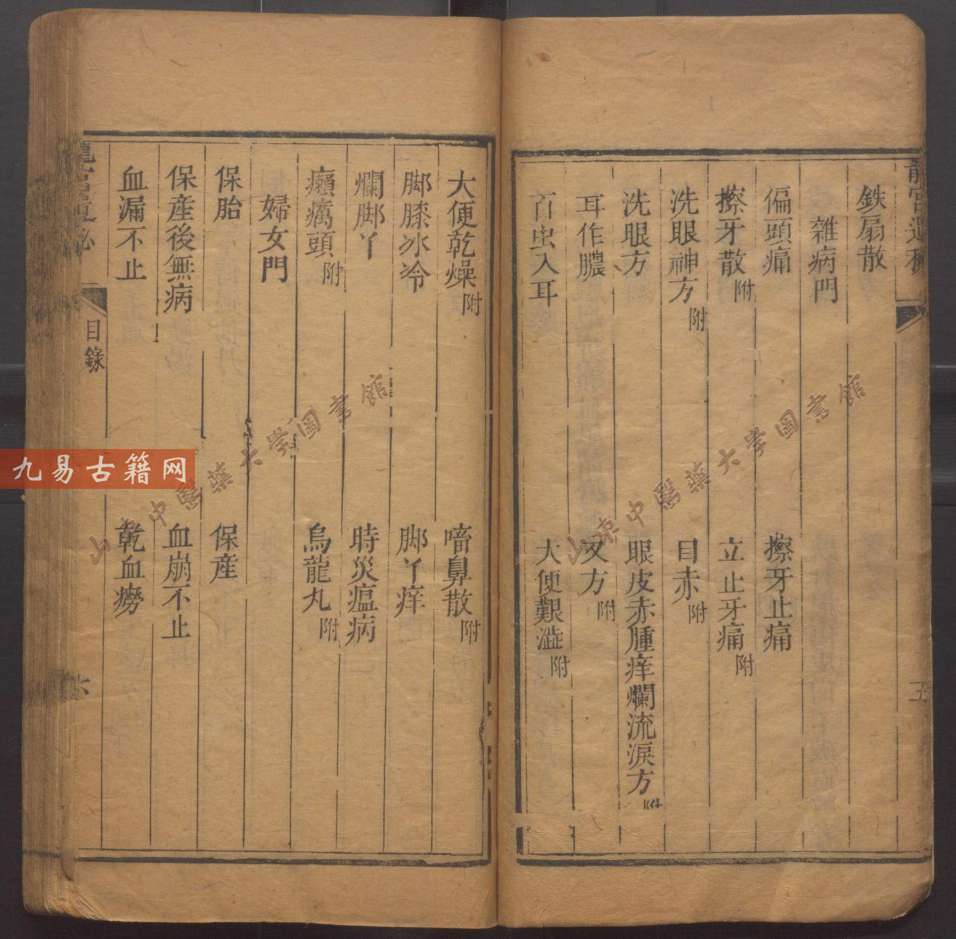 鉄扇散
雜病門
偏頭痛 擦牙止痛
擦牙散附 立止牙痛附
洗眼神方附 目赤附
洗眼方 眼皮赤腫痒爛流淚方附
耳作膿 又方附
百虫入耳 大便艱澁附
五
大便乾燥附 嗜鼻散附
脚膝冰冷 脚丫痒
爛脚丫 時災瘟病
癩癘頭附 烏龍丸附
婦女門
保胎 保產
保產後無病 血崩不止
血漏不止 乾血癆
目錄 六
九易古籍网
中醫藥大學圖書館
中醫藥大學圖書館